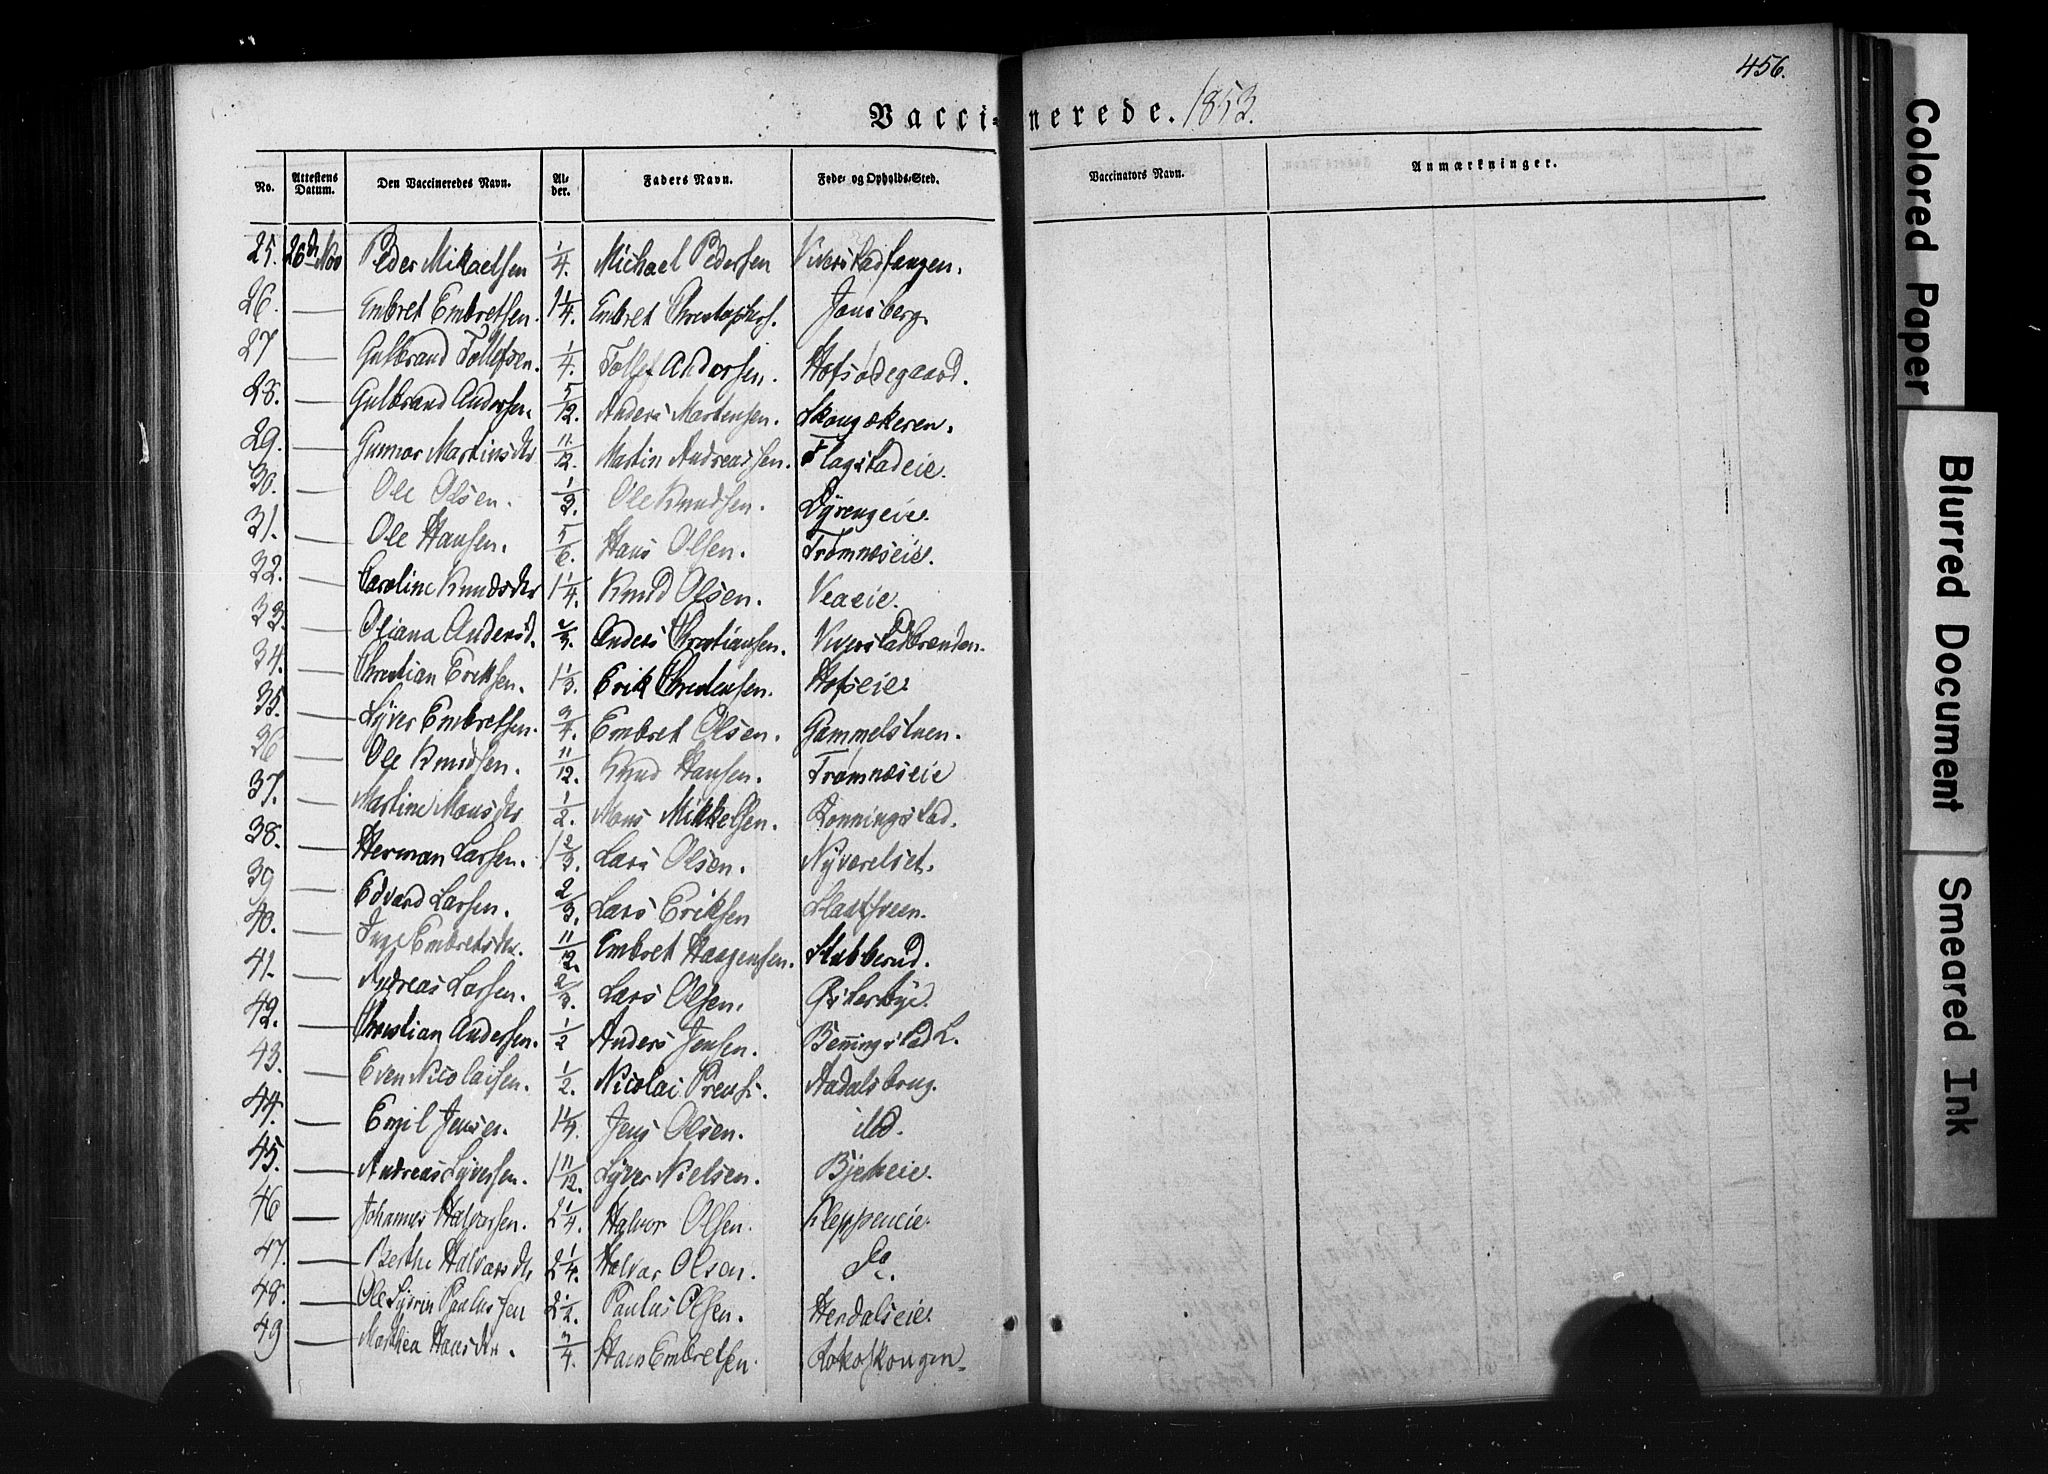 456.
Vaccinerede. 1853.
No. Attestens Datum. Den Vaccineredes Navn. Alder. Faders Navn. Føde- og Opholds-Sted. Vaccinators Navn. Anmærkninger.
25. 26de Nov Peder Mikaelsen 1/4. Michael Pedersen Viverstadhaugen.
26. — Embret Embretsen. 1 1/4. Embret Christophers. Jonsberg.
27 — Gulbrand Tollefsen. 1/4. Tollef Andersen. Hofsødegaard.
28. — Gulbrand Andersen. 5/12. Anders Martensen. Skougækeren.
29. — Gunnar Martinsdtr 11/12. Martin Andreassen. Flagstadeie.
30. — Ole Olsen. 1/2. Ole Knudsen. Dyrengeie.
31. — Ole Hansen. 5/6. Hans Olsen. Trømnæseie.
32. — Caroline Knudsdtr 1 1/4. Knud Olsen. Veaeie.
33. — Oliana Andersd. 2/3. Anders Christiansen. Viverstadbrænden.
34. — Christian Eriksen. 1 1/3. Erik Christensen. Hofseie.
35. — Syver Embretsen. 3/4. Embret Olsen. Gammelstuen.
36 — Ole Knudsen. 11/12. Knud Hansen. Trømnæseie
37. — Martine Monsdtr 1/2. Mons Mikkelsen. Konningstad.
38. — Herman Larsen. 1 2/3. Lars Olsen. Nyverelset.
39 — Edvard Larsen. 2/3. Lars Eriksen Slaatsveen.
40. — Inge Embretsdtr. 11/12. Embret Haagensen. Stubberud.
41. — Andreas Larsen. 2/3. Lars Olsen. Østerbye.
42. — Christian Andersen. 1/2 Anders Jensen. Benningstad L.
43. — Even Nicolaisen. 1/2. Nicolai Aadalsbrug.
44. — Emil Jensen. 1 1/3. Jens Olsen. ibd.
45. — Andreas Syversen. 1 11/12. Syver Nielsen. Bjerkeie.
46 — Johannes Halvorsen. 2 1/4. Halvor Olsen. Kleppeneie.
47. — Berthe Halvorsdtr 2 1/4. Halvor Olsen. Do.
48. — Ole Syvrin Paulussen 2 1/2. Paulus Olsen. Herdalseie.
49 — Marthea Hansdtr. 3/4. Hans Embretsen. Rokoskougen.
Colored Paper
Blurred Document
Smeared Ink